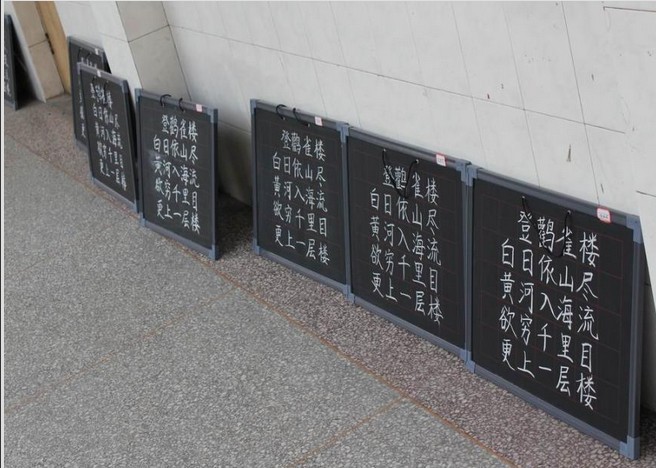 登鹳雀楼
白日依山尽
黄河入海流
欲穷千里目
更上一层楼
登鹳雀楼
白日依山尽
黄河入海流
欲穷千里目
更上一层楼
登鹳雀楼
白日依山尽
黄河入海流
欲穷千里目
更上一层楼
登鹳雀楼
白日依山尽
黄河入海流
欲穷千里目
更上一层楼
登鹳雀楼
白日依山尽
黄河入海流
欲穷千里目
更上一层楼